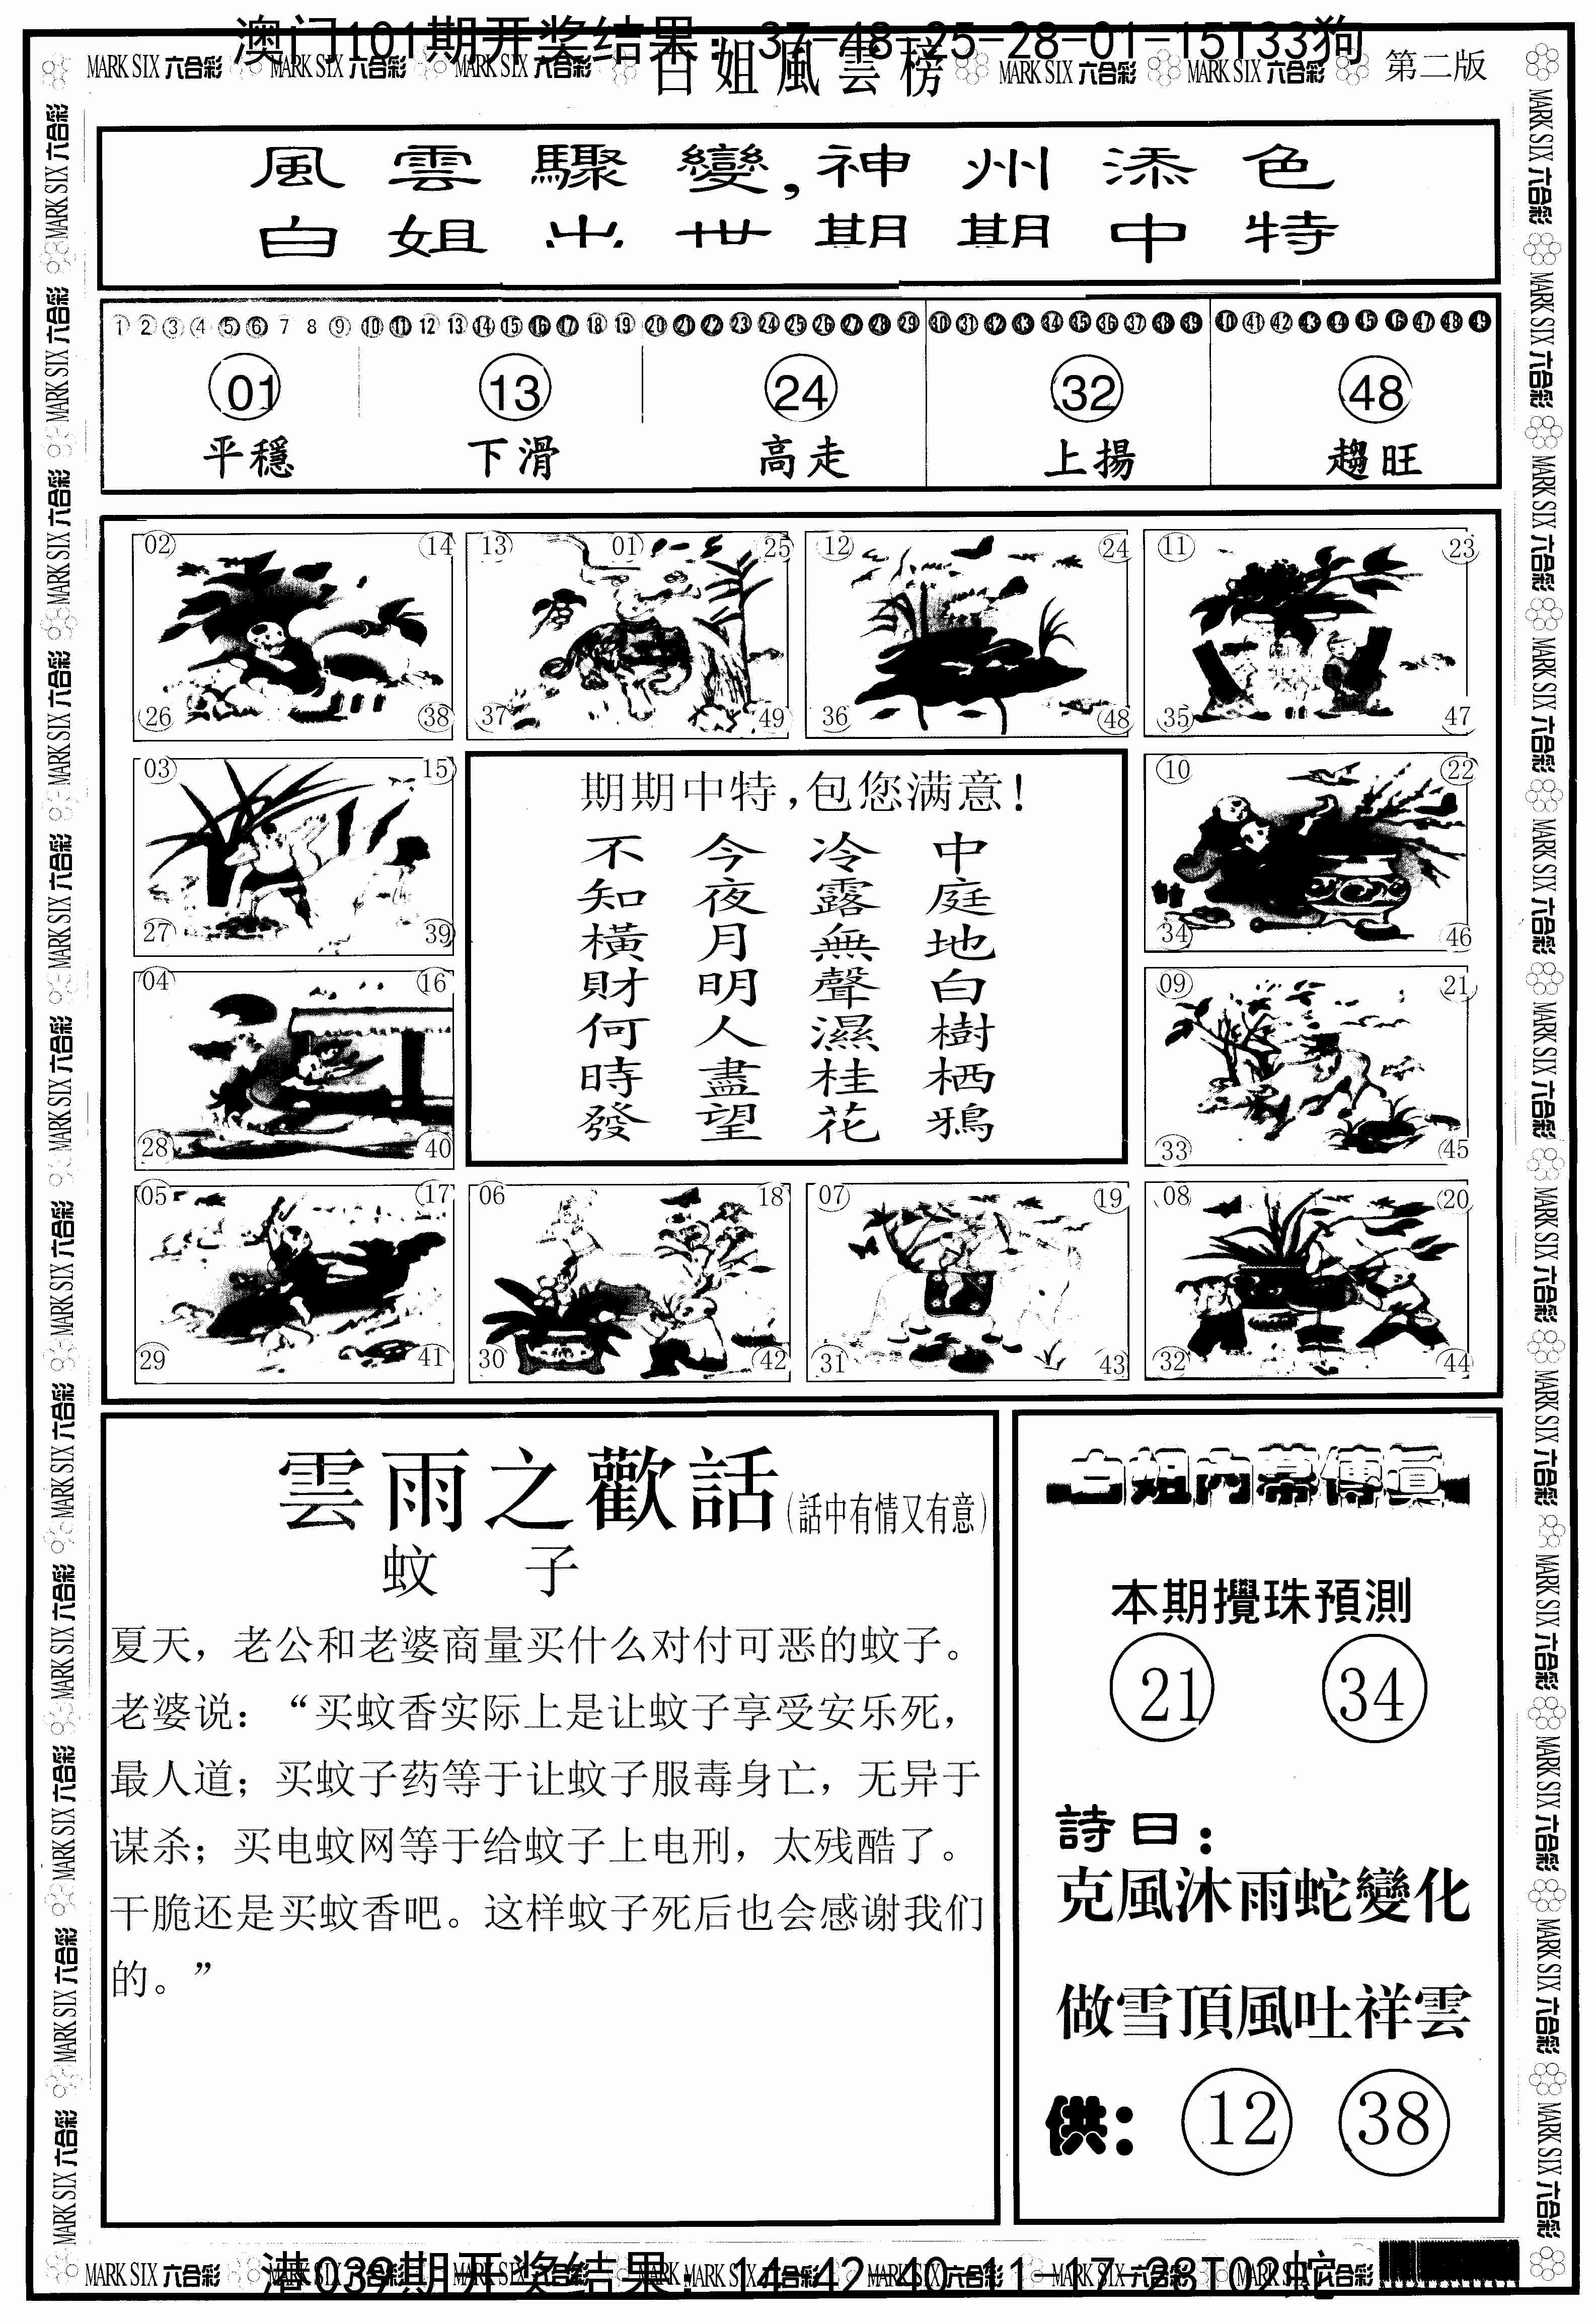 澳门101期开奖结果：37-48-25-28-01-15T33狗
MARK SIX 六合彩 MARK SIX 六合彩 MARK SIX 六合彩 白姐風雲榜 MARK SIX 六合彩 MARK SIX 六合彩 第二版
風雲驟變,神州添色
白姐出世期期中特
1 2 3 4 5 6 7 8 9 10 11 12 13 14 15 16 17 18 19 20 21 22 23 24 25 26 27 28 29 30 31 32 33 34 35 36 37 38 39 40 41 42 43 44 45 46 47 48 49
01 13 24 32 48
平穩 下滑 高走 上揚 趨旺
02 14 13 01 25 12 24 11 23
26 38 37 49 36 48 35 47
03 15 10 22
27 39 34 46
04 16 09 21
28 40 33 45
05 17 06 18 07 19 08 20
29 41 30 42 31 43 32 44
期期中特,包您满意!
中庭地白樹栖鴉
冷露無聲濕桂花
今夜月明人盡望
不知橫財何時發
雲雨之歡話(話中有情又有意)
蚊子
夏天，老公和老婆商量买什么对付可恶的蚊子。
老婆说：“买蚊香实际上是让蚊子享受安乐死，
最人道；买蚊子药等于让蚊子服毒身亡，无异于
谋杀；买电蚊网等于给蚊子上电刑，太残酷了。
干脆还是买蚊香吧。这样蚊子死后也会感谢我们
的。”
白姐内幕傳真
本期攪珠預測
21 34
詩曰：
克風沐雨蛇變化
做雪頂風吐祥雲
供：12 38
港039期开奖结果：14-42-40-11-17-28T02蛇
MARK SIX 六合彩 MARK SIX 六合彩 MARK SIX 六合彩 MARK SIX 六合彩 MARK SIX 六合彩 MARK SIX 六合彩 MARK SIX 六合彩